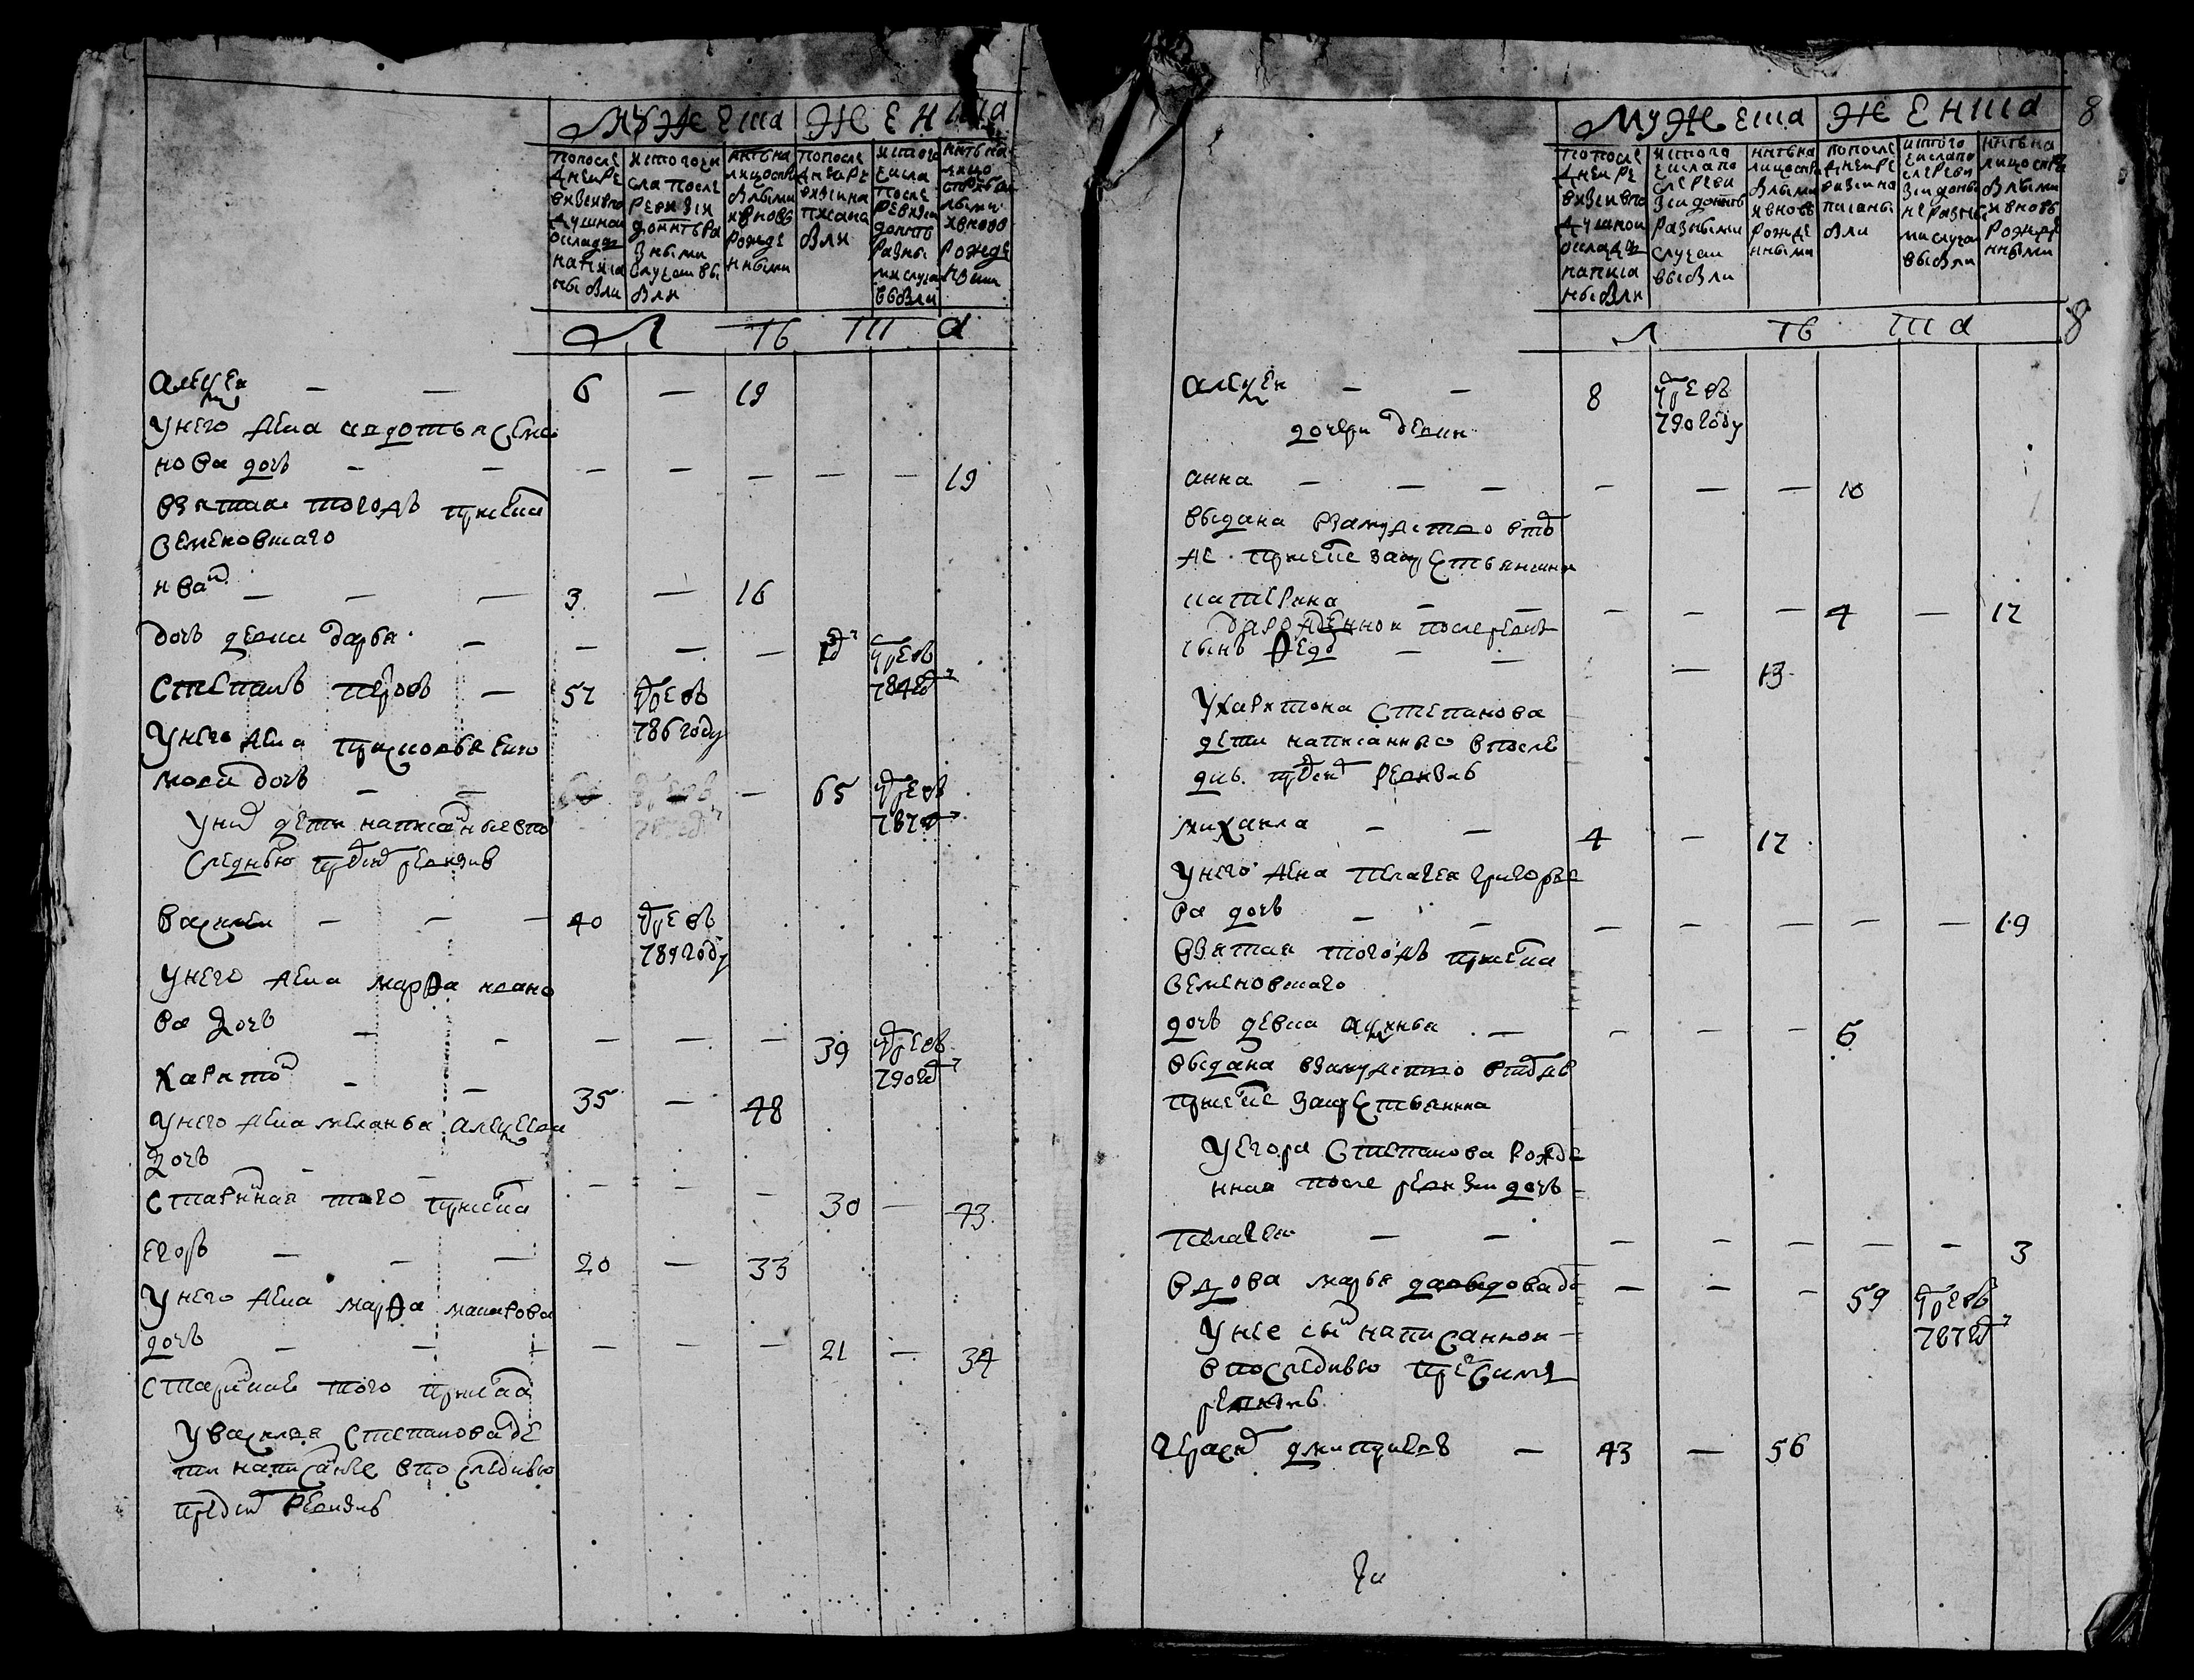 мужеска женска
по после
дней ре
визии во
душной
оклад
написа
ны были
ис того чи
сла после
ревизии
до ныне ра
зными
случаи вы
были
ныне на
лицо с при
былыми
и вновь
рожде
нными
по после
дней ре
визии на
писаны
были
ис того
числа
после
ревизии
до ныне
разны
ми случаи
выбыли
ныне на
лицо
с прибы
лыми
и вновь
рожде
нными
л ѣ т а
алексеи — — 6 — 19
у него жена авдотья семе
нова дочь — — — — — — — 19
взятая того ж прихода
иван — — — 3 — 16
дочь девка дарья — — — —
умре в
784 год
степанъ петровъ — 52 умре в
786 году
у него жена прасковья
дочь — — — 65 умре в
787 год
у них дети написанные в по
следнюю пред сим ревизию
василеи — — — 40 умре в
789 году
у него жена марфа ивано
ва дочь — — — — — 39 умре в
790 год
харитон — — 35 — 48
у него жена меланья алексеева
дочь — — — — — 30 — 43
старинная того прихода
егоръ — — — 20 — 33
у него жена марфа макарова
дочь — — — — — — 21 — 34
старинная того прихода
у василья степанова де
ти написаные в последнюю
пред сим ревизию
8
мужеска женска
по после
дней ре
визии во
душной
оклад
написа
ны были
ис того
числа по
сле реви
зии до ныне
разными
случаи
выбыли
ныне на
лицо с при
былыми
и вновь
рожде
нными
по после
дней ре
визии на
писаны
были
ис того
числа по
сле реви
зии до ны
не разны
ми случаи
выбыли
ныне на
лицо с при
былыми
и вновь
рожде
нными
л ѣ т а 8
алексеи — — 8 умре в
790 году
дочери девки
анна — — — — — — 10
выдана в замужство в то
катерина — — — — — 4 — 17
да рожденной после ревизии
сынъ федор — — — 13
у харитона степанова
дети написанные в после
днюю пред сим ревизию
михаила — — 4 — 17
у него жена пелагея григорье
ва дочь — — — — — — — 19
взятая того ж прихода
дочь девка — — — — 6
выдана в замужство в том же
у егора степанова рожде
нная после ревизии дочь
пелагея — — — — — — — 3
вдова марья — — — 59 умре в
787 год
у нее сын написанной
в последнюю пред сим
ревизию
герасим дмитриевъ — 43 — 56